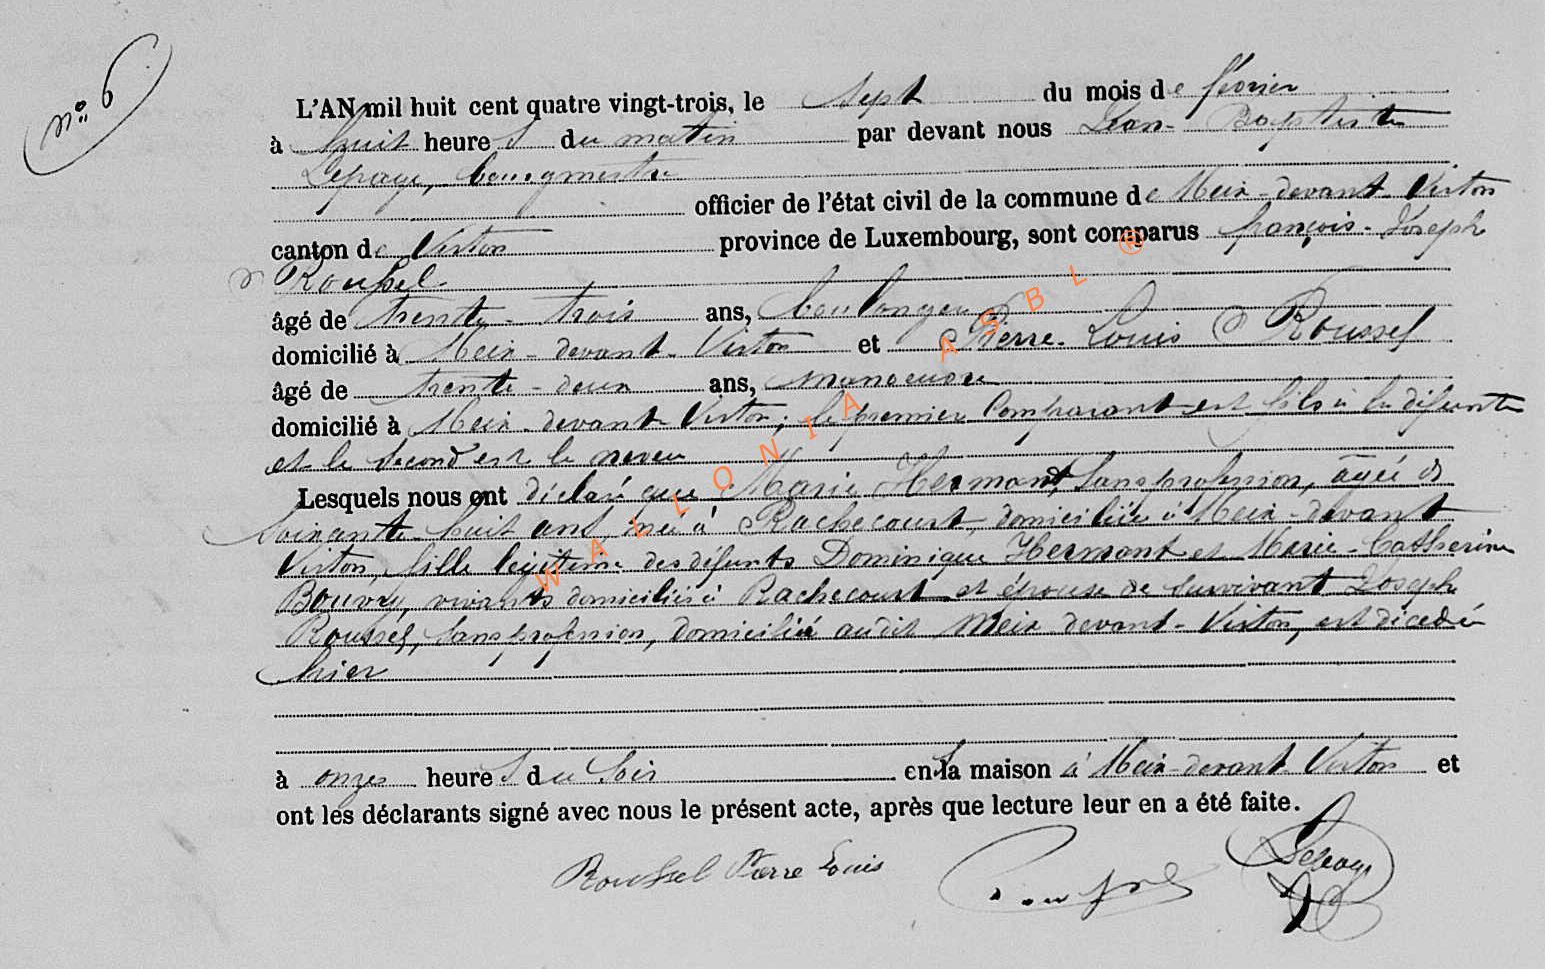 n° 6
L'AN mil huit cent quatre vingt-trois, le sept du mois de février
à huit heures du matin par devant nous Jean-Baptiste
Lepage, bourgmestre
officier de l'état civil de la commune de Meix-devant-Virton
canton de Virton province de Luxembourg, sont comparus françois-Joseph
Roussel
âgé de trente-trois ans, boulanger
domicilié à Meix-devant-Virton et Pierre-Louis Roussel
âgé de trente-deux ans, manoeuvre
domicilié à Meix-devant-Virton, le premier comparant est fils à la défunte
et le second est le neveu
Lesquels nous ont déclaré que Marie Hermant, sans profession, âgée de
soixante-huit ans, née à Rachecourt, domiciliée à Meix-devant
Virton, fille légitime des défunts Dominique Hermant et Marie-Catherine
Bouvry, vivants domiciliés à Rachecourt et épouse de survivant Joseph
Roussel, sans profession, domicilié audit Meix devant-Virton, est décédée
hier
à onze heures du soir en sa maison à Meix-devant-Virton et
ont les déclarants signé avec nous le présent acte, après que lecture leur en a été faite.
Roussel Pierre Louis Roussel Lepage
WALLONIA ASBL ®